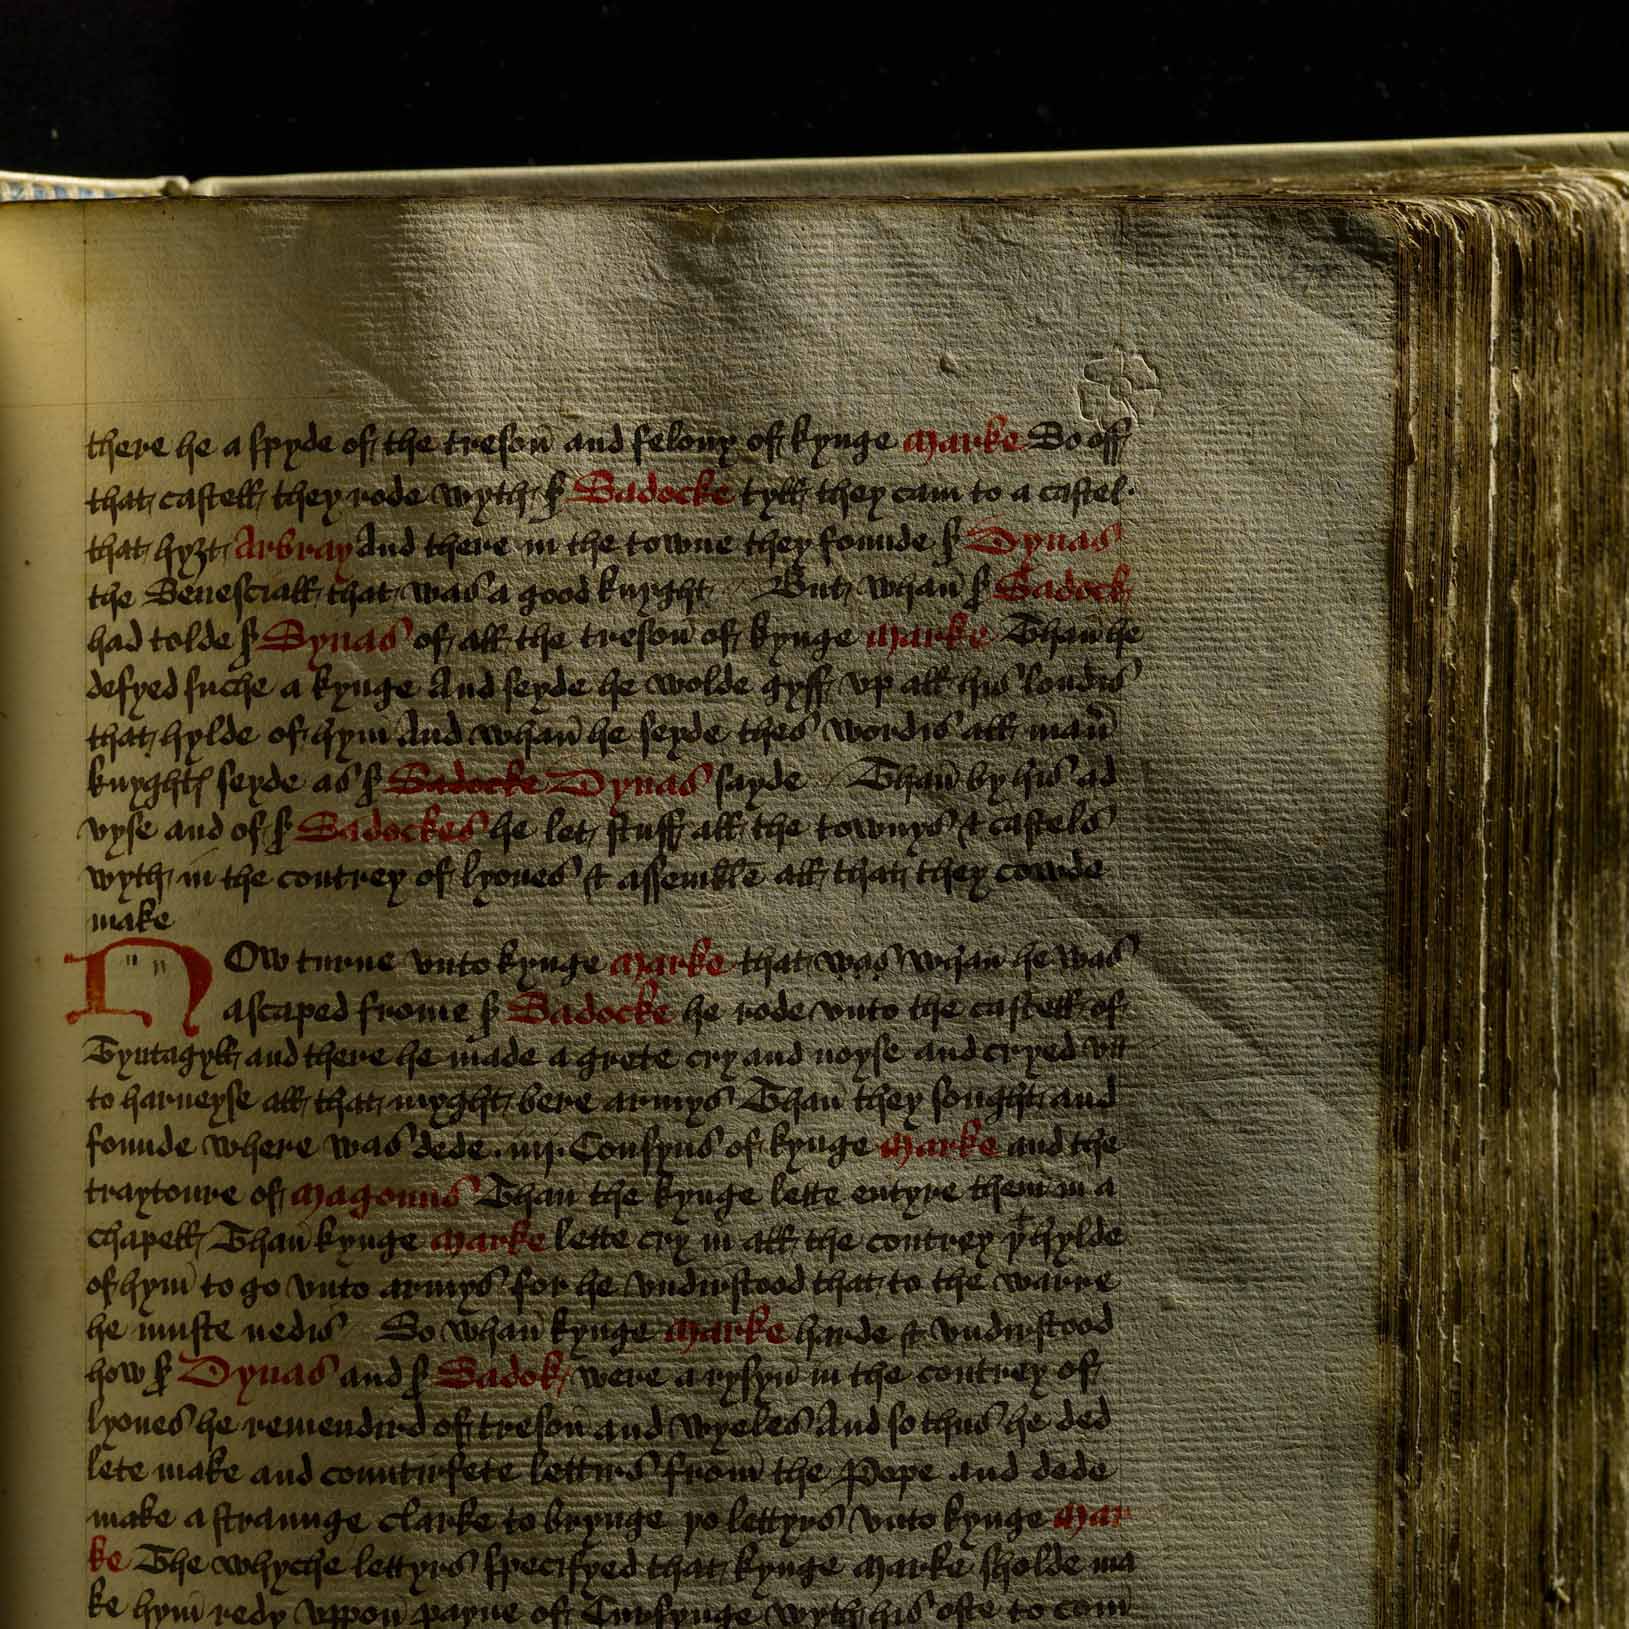 there he a spyde of the tresoū and felony of kynge Marke So off
that castell they rode wyth ẜ Sadocke tyll they cam to a castel·
that hyȝt Arbray And there in the towne they founde ẜ Dynas
the Senesciall that was a good knyght But whan̄ ẜ Sadock
had tolde ẜ Dynas of all the tresoū of kynge Marke Than̄ he
defyed suche a kynge And seyde he wolde gyff vp all his londis
that hylde of hym̄ And whan̄ he seyde thes wordis all man̄
knyghtꝭ seyde as ẜ Sadocke Dynas sayde Than̄ by his ad
vyse and of ẜ Sadockes he let stuff all the townys & castels
wyth in the contrey of lyones & assemble all that they cowde
make
NOw turne vnto kynge Marke that was whan̄ he was
ascaped frome ẜ Sadocke he rode vnto the castell of
Tyntagyll and there he made a grete cry and noyse and cryed vn
to harneyse all that myght bere armys Than̄ they sought and
founde where was dede .iiij. Cousyns of kynge Marke and the
traytoure of Magouns Than the kynge lette entyre them̄ in a
chapell Than̄ kynge Marke lette cry in all the contrey yᵗ hylde
of hym̄ to go vnto armys for he vndirstood that to the warre
he muste nedis So whan̄ kynge Marke harde & vndirstood
how ẜ Dynas and ẜ Sadok were a rysyn̄ in the contrey of
lyones he remendird of tresoū and wyeles And so thus he ded
lete make and countirfete lettirs from̄ the Pope and dede
make a straunge clarke to brynge yo lettyrs vnto kynge Mar
ke The whyche lettyrs specifyed that kynge Marke sholde ma
ke hym̄ redy vppon̄ payne of Curs kynge wyth his oste to com